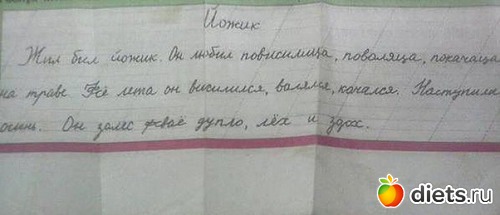 Йожик
Жил был йожик. Он любил повисилица, поваляца, покачаца
на траве Фё лета он висилился, валялся, качался. Наступили
осинь. Он залес фваё дупло, лёх и здох.
diets.ru